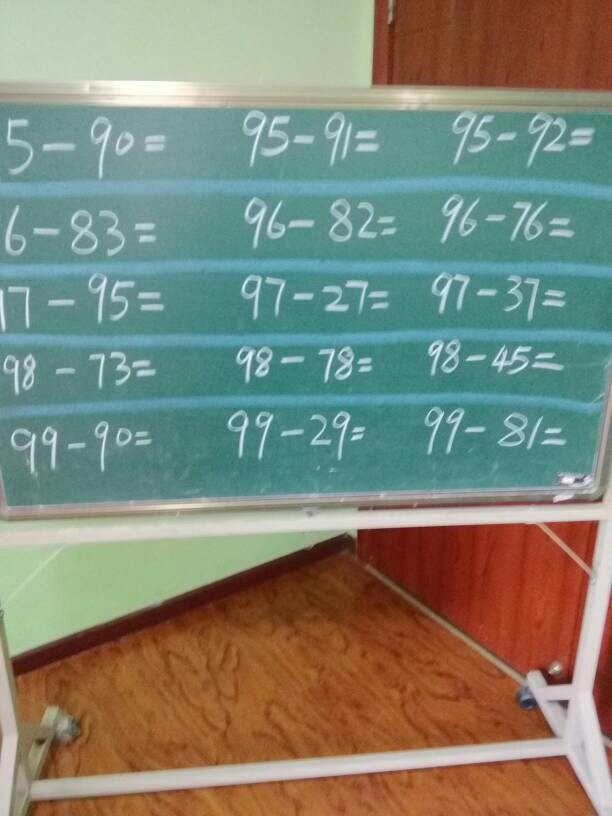 5-90= 95-91= 95-92=
6-83= 96-82= 96-76=
17-95= 97-27= 97-37=
98-73= 98-78= 98-45=
99-90= 99-29= 99-81=